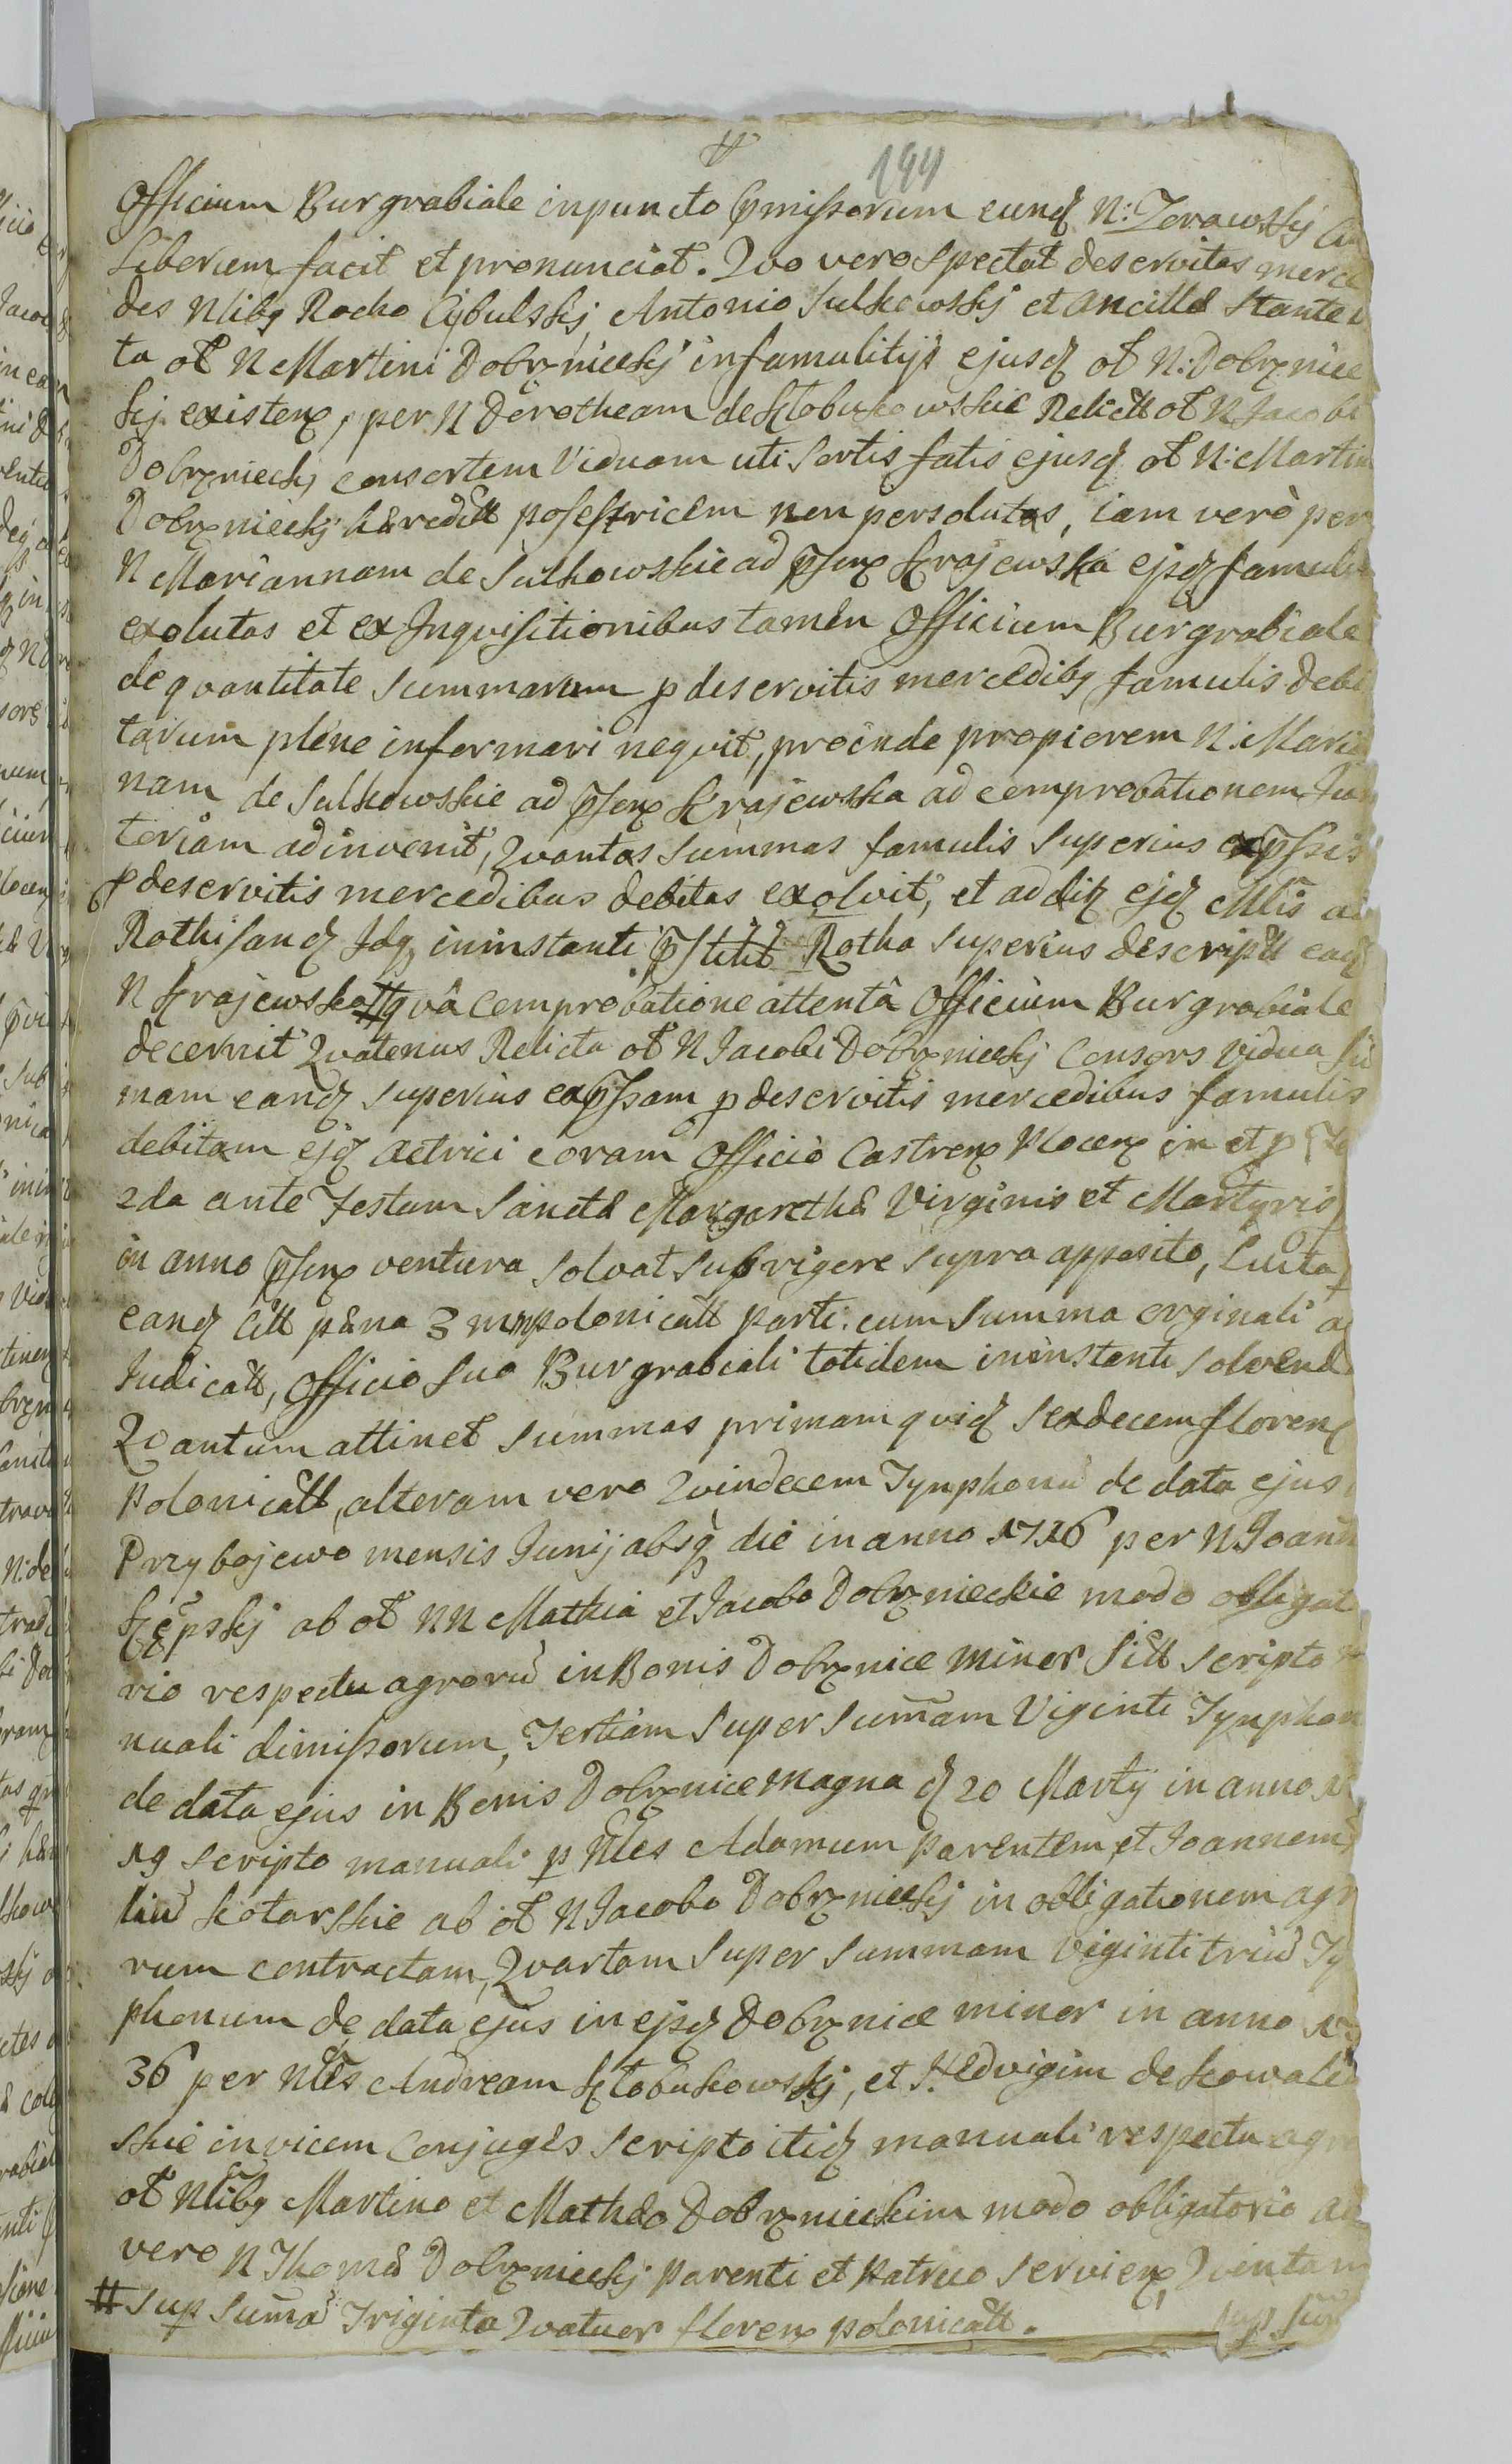 194
Officium Burgrabiale inpuncto pmissorum eundq N: Zerawskj
Liberum facit et pronunciat. Qvo vero spectat deservitas merce
des Nlibq Rocho Cybulskj Antonio Sulkowskj et Ancillæ
ta ol N Martini Dobrznieckj infamulitijs ejusdq ol N: Dobrzniec
kj existenx, per N Dorotheam de Kłobukowskie Relictt ol N Jacobi
Dobrznieckj consortem Viduam uti sortis fatis ejusdq ol N: Martini
Dobrznieckj hæreditt posessricem non persolutas, iam verò per
N Mariannam de Sulkowskie ad psenx Krajewska ejsdq famulis
exolutas et ex Inqvisitionibus tamen Officium Burgrabiale
de qvantitate summarum p deservitis mercedibq famulis debi
tarum plene informari neqvit, proinde propiorem N: Maria
nam de Sulkowskie ad psenx Krajewska ad comprobationem Iura
toriam adinvenit, Qvantas summas famulis superius expssis
p deservitis mercedibus debitas exolvit, et addiz ejdq Mltis
Rothisandq Idq ininstanti pstitit Rotha superius descriptt eadq
N Krajewska # qvâ comprobatione attentâ Officium Burgrabiale
decernit Qvatenus Relicta ol N Jacobi Dobrznieckj Consors Vidua Su
mam eandq superius expssam p deservitis mercedibus famulis
debitam ejdq Actrici coram Officio Castrenx Plocenx in et p
2da ante Festum Sanctæ Margarethæ Virginis et Martyris
in anno psenx ventura solvat sub rigore supra apposito, Luita
eandq litt pæna 3 mrpolonicatt parti cum summa orginali
Iudicatt, Officio suo Burgrabiali totidem ininstanti solvend
Qvantum attinet summas primam qvidq sexdecem florenx
Polonicatt, alteram vero Qvindecem Tynphonũ de data ejus
Przybojewo mensis Junij absq die in anno 1716 per N Joann
Kępskj ab ol NN Mathia et Jacobo Dobrznieckie modo obligat
rio respectu agrorũ in Bonis Dobrznice minor sitt scripto
nuali dimissorum, Tertiam super sum̃am Viginti Tynphon
de data ejus in Bonis Dobrznice magna d 20 Martij in anno 17
19 scripto manuali p Nles Adamum parentem, et Joannem
liũ Kotarskie ab ol N Jacobo Dobrznieckj in obligationem agr
rum contractam, Qvartam super summam Viginti triũ Ty
phonum de data ejus in ejsdq Dobrznice minor in anno 17
36 per Nles Andream Kłobukowskj, et Hedvigim de Kowale
skie invicem Conjuges scripto itidq manuali respectu agro
ol Nlibq Martino et Mathæo Dobrznieckim modo obligatorio
vero N Thomæ Dobrznieckj parenti et patruo servienx, Qvintam
# Sup sum̃ã Triginta Qvatuor florenx polonicatt.
sup sum̃